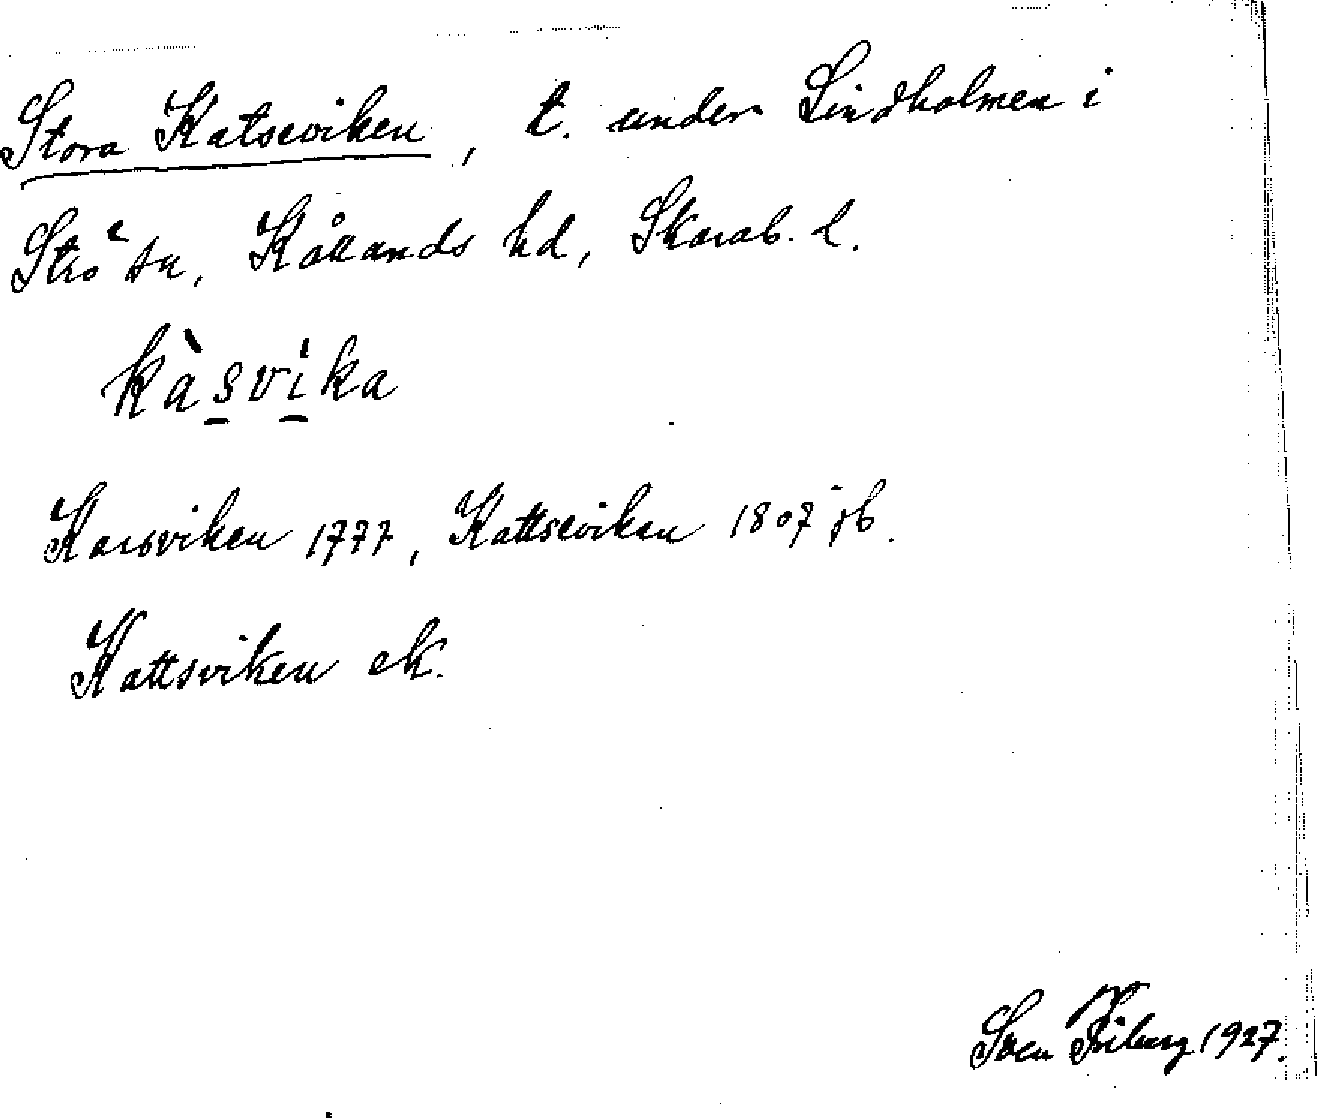 Stora Katseviken, t. under Lindholmen i
Strö sn, Kållands hd, Skarab. l.
kàsvika
Karsviken 1777, Kattseviken 1807 jb.
Kattsviken ek.
Sven Friberg 1927.